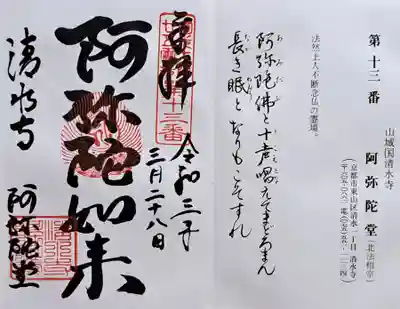 第十三番
山城国清水寺
阿弥陀堂(北法相宗)
京都市東山区清水一丁目 清水寺
法然上人不断念仏の霊場。
阿弥陀佛と十声唱えてまどろまん
長き眠と なりもこそすれ
奉拝
令和三年
三月二十八日
阿弥陀如来
清水寺 阿弥陀堂